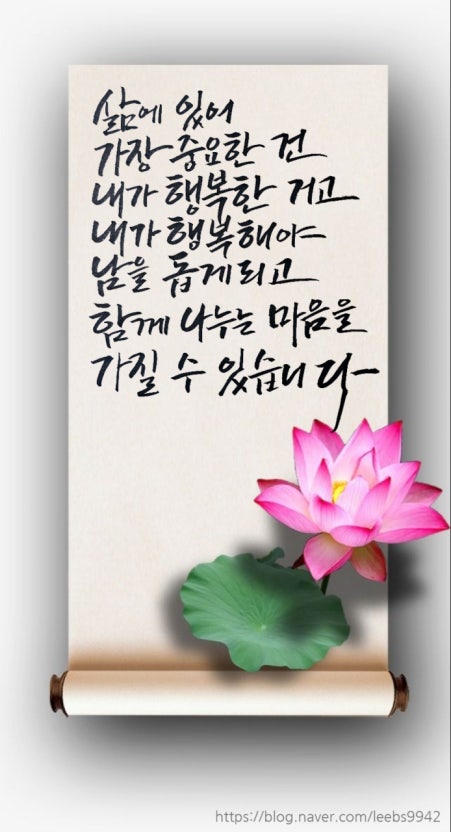 삶에 있어
가장 중요한 건
내가 행복한 거고
내가 행복해야
남을 돕게되고
함께 나누는 마음을
가질 수 있습니다
https://blog.naver.com/leebs9942